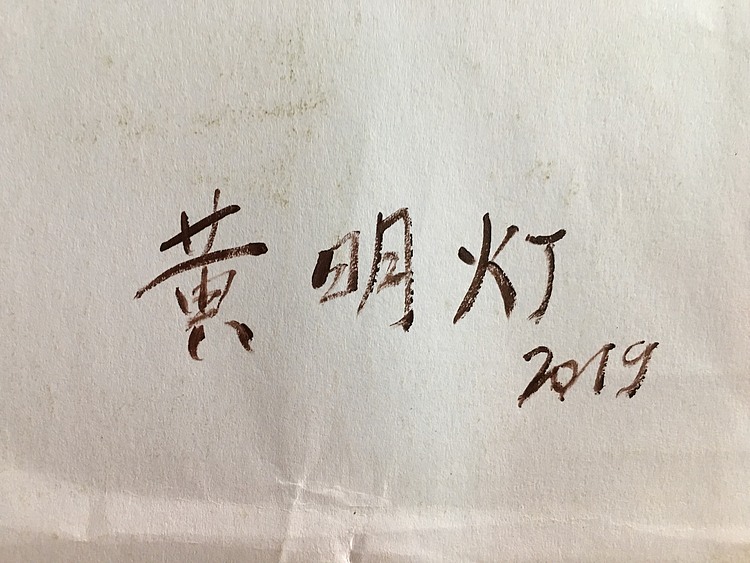 黄明灯
2019